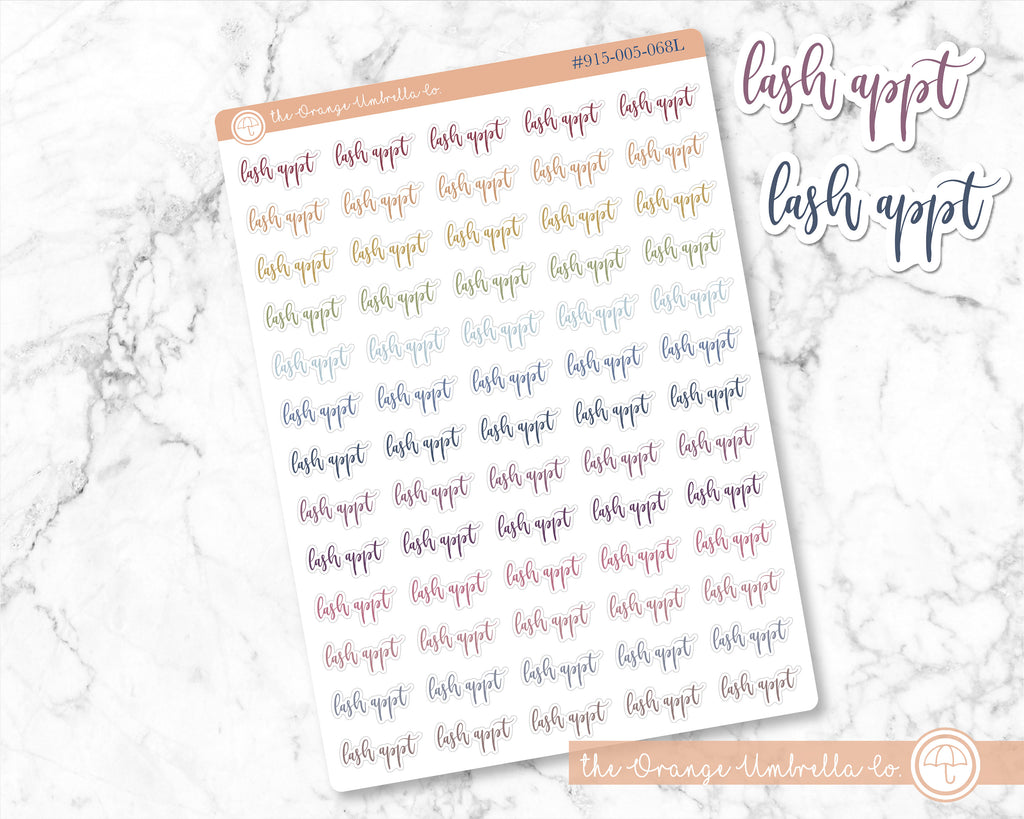 #915-005-068L
the Orange Umbrella Co.
lash appt lash appt lash appt lash appt lash appt
lash appt lash appt lash appt lash appt lash appt
lash appt lash appt lash appt lash appt lash appt
lash appt lash appt lash appt lash appt lash appt
lash appt lash appt lash appt lash appt lash appt
lash appt lash appt lash appt lash appt lash appt
lash appt lash appt lash appt lash appt lash appt
lash appt lash appt lash appt lash appt lash appt
lash appt lash appt lash appt lash appt lash appt
lash appt lash appt lash appt lash appt lash appt
lash appt lash appt lash appt lash appt lash appt
lash appt lash appt lash appt lash appt lash appt
lash appt lash appt lash appt lash appt lash appt
lash appt
lash appt
the Orange Umbrella Co.